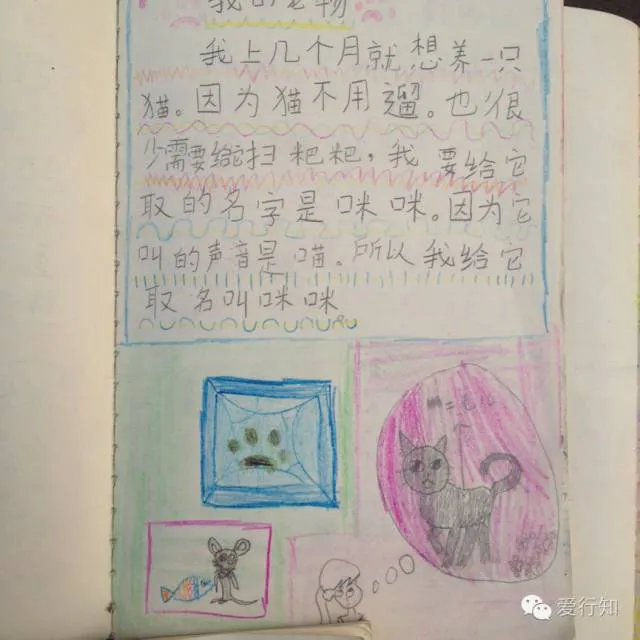 我的宠物
我上几个月就想养一只
猫。因为猫不用遛。也很
少需要给它扫粑粑，我要给它
取的名字是咪咪。因为它
叫的声音是喵。所以我给它
取名叫咪咪
爱行知